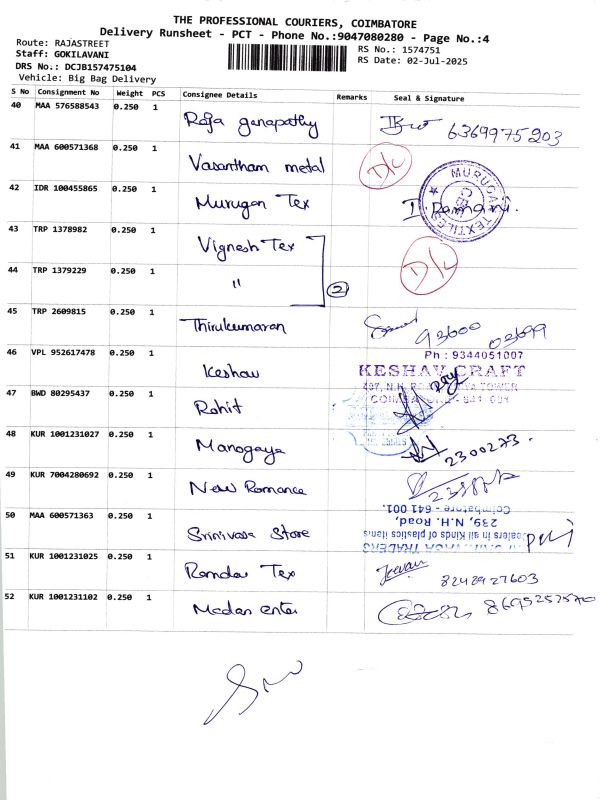 THE PROFESSIONAL COURIERS, COIMBATORE
Delivery Runsheet - PCT - Phone No.:9047080280 - Page No.:4
Route: RAJASTREET
RS No.: 1574751
Staff: GOKILAVANI
RS Date: 02-Jul-2025
DRS No.: DCJB157475104
Vehicle: Big Bag Delivery
S No Consignment No Weight PCS Consignee Details Remarks Seal & Signature
40 MAA 576588543 0.250 1 Raja ganapathy 6369975203
41 MAA 600571368 0.250 1 Vasantham metal D/L
42 IDR 100455865 0.250 1 Murugan Tex MURUGAN TEXTILES CBE
43 TRP 1378982 0.250 1 Vignesh Tex
44 TRP 1379229 0.250 1 " 2 D/L
45 TRP 2609815 0.250 1 Thirukumaran 93600 03699
46 VPL 952617478 0.250 1 Keshav Ph : 9344051007
KESHAV CRAFT
47 BWD 80295437 0.250 1 Rohit
48 KUR 1001231027 0.250 1 Manogaya 2300273.
49 KUR 7004280692 0.250 1 New Romance
50 MAA 600571363 0.250 1 Srinivasa Store
239, N.H. Road,
Coimbatore - 641 001.
Dealers in all Kinds of plastics items
51 KUR 1001231025 0.250 1 Ramdev Tex Jeevan 8248927603
52 KUR 1001231102 0.250 1 Madan enter 8695257570